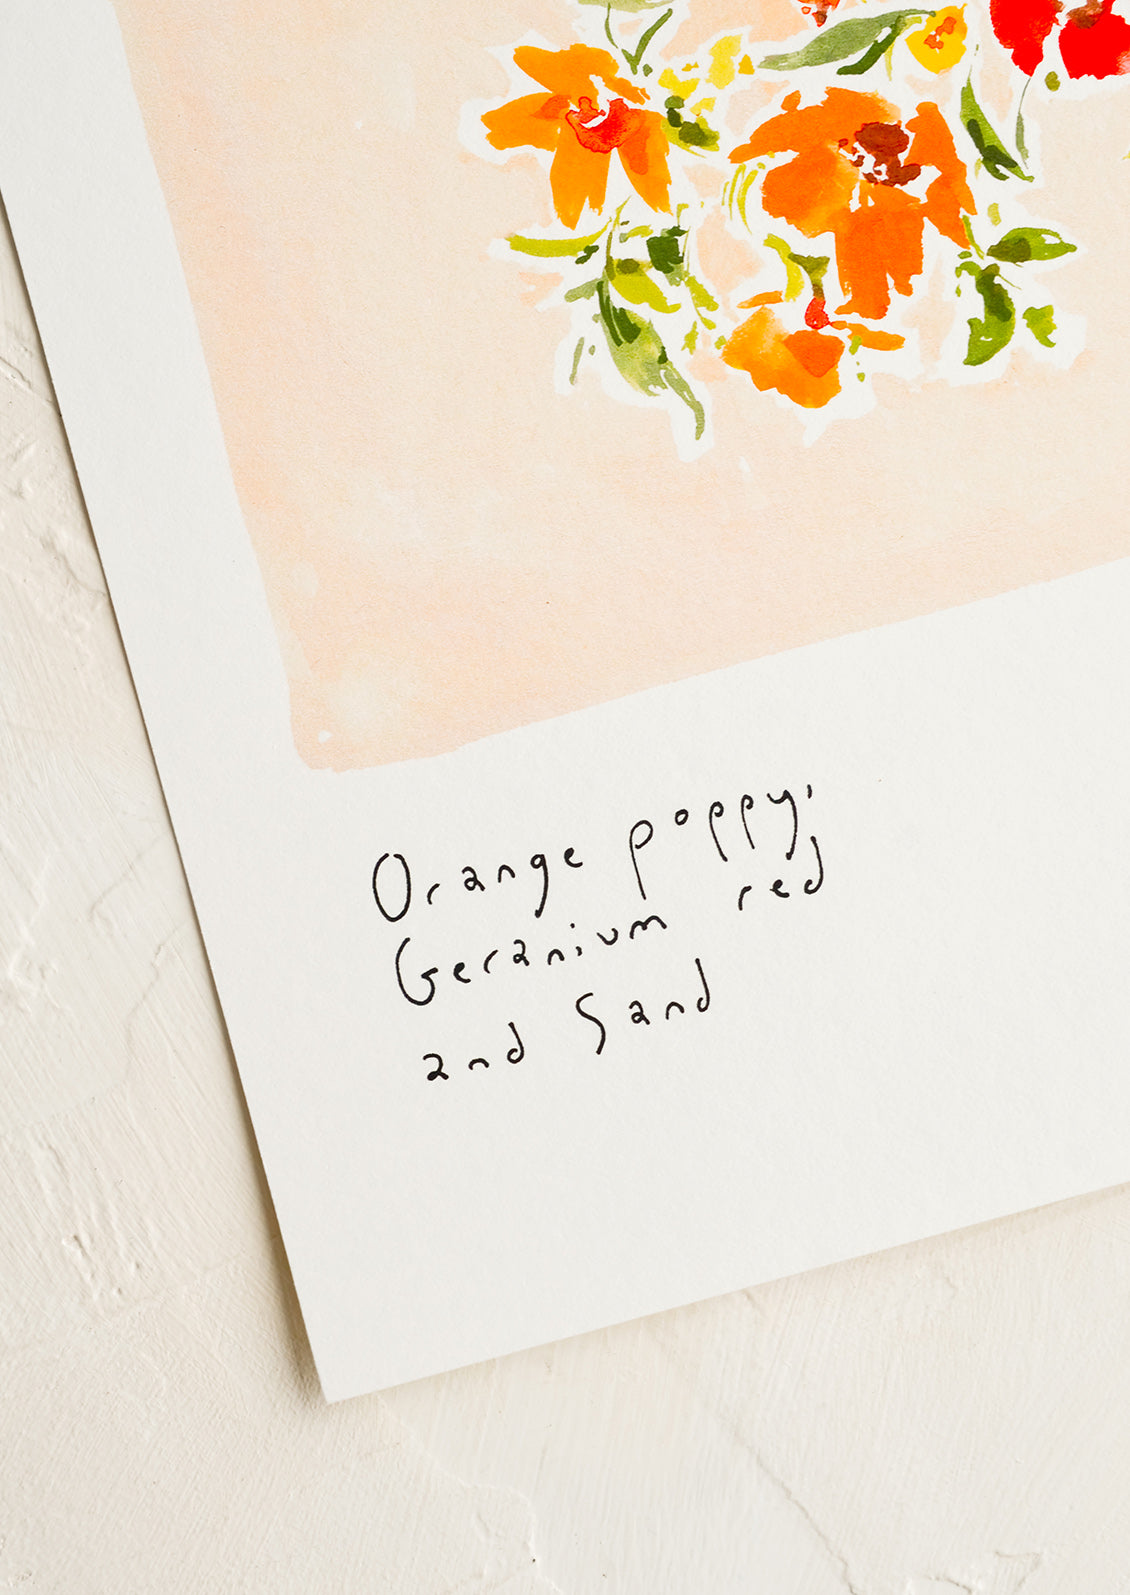 Orange poppy,
Geranium red
and Sand